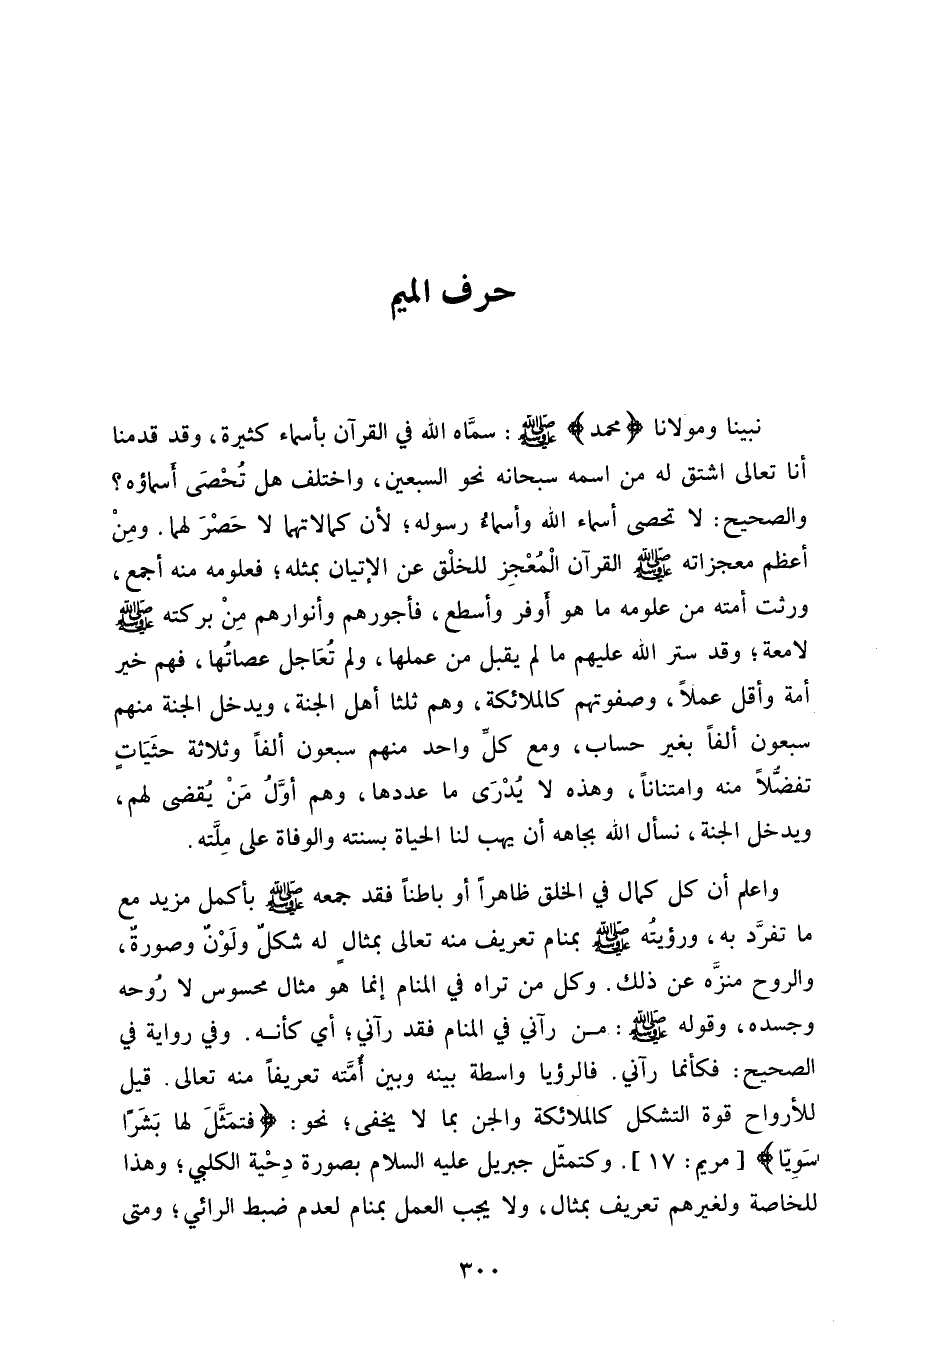 حرف الميم
نبينا ومولانا ﴿محمد﴾ ﷺ : سمَّاه الله في القرآن بأسماء كثيرة، وقد قدمنا
أنا تعالى اشتق له من اسمه سبحانه نحو السبعين، واختلف هل تُحْصَى أَسماؤه؟
والصحيح: لا تحصى أسماء الله وأسماءُ رسوله؛ لأن كمالاتهما لا حَصْرَ لها. ومِنْ
أعظم معجزاته ﷺ القرآن الْمُعْجِز للخلْق عن الإتيان بمثله؛ فعلومه منه أجمع،
ورثت أمته من علومه ما هو أَوفر وأسطع، فأجورهم وأنوارهم مِنْ بركته ﷺ
لامعة؛ وقد ستر الله عليهم ما لم يقبل من عملها، ولم تُعَاجل عصاتُها، فهم خير
أمة وأقل عملاً، وصفوتهم كالملائكة، وهم ثلثا أهل الجنة، ويدخل الجنة منهم
سبعون ألفاً بغير حساب، ومع كلِّ واحد منهم سبعون ألفاً وثلاثة حثَيَاتٍ
تفضُّلاً منه وامتناناً، وهذه لا يُدْرَى ما عددها، وهم أوَّلُ مَنْ يُقضى لهم،
ويدخل الجنة، نسأل الله بجاهه أن يهب لنا الحياة بسنته والوفاة على مِلَّته.
واعلم أن كل كمال في الخلق ظاهراً أو باطناً فقد جمعه ﷺ بأكمل مزيد مع
ما تفرَّد به، ورؤيتُه ﷺ بمنام تعريف منه تعالى بمثالٍ له شكلٌ ولَوْنٌ وصورةٌ،
والروح منزَّه عن ذلك. وكل من تراه في المنام إنما هو مثال محسوس لا رُوحه
وجسده، وقوله ﷺ : مـن رآني في المنام فقد رآني؛ أي كأنـه. وفي رواية في
الصحيح: فكأنما رآني. فالرؤيا واسطة بينه وبين أُمَّته تعريفاً منه تعالى. قيل
للأرواح قوة التشكل كالملائكة والجن بما لا يخفى؛ نحو: ﴿فتمَثَّلَ لها بَشَرًا
سَوِيّا﴾ [ مريم: ١٧ ]. وكتمثّل جبريل عليه السلام بصورة دِحْية الكلبي؛ وهذا
للخاصة ولغيرهم تعريف بمثال، ولا يجب العمل بمنام لعدم ضبط الرائي؛ ومتى
٣٠٠